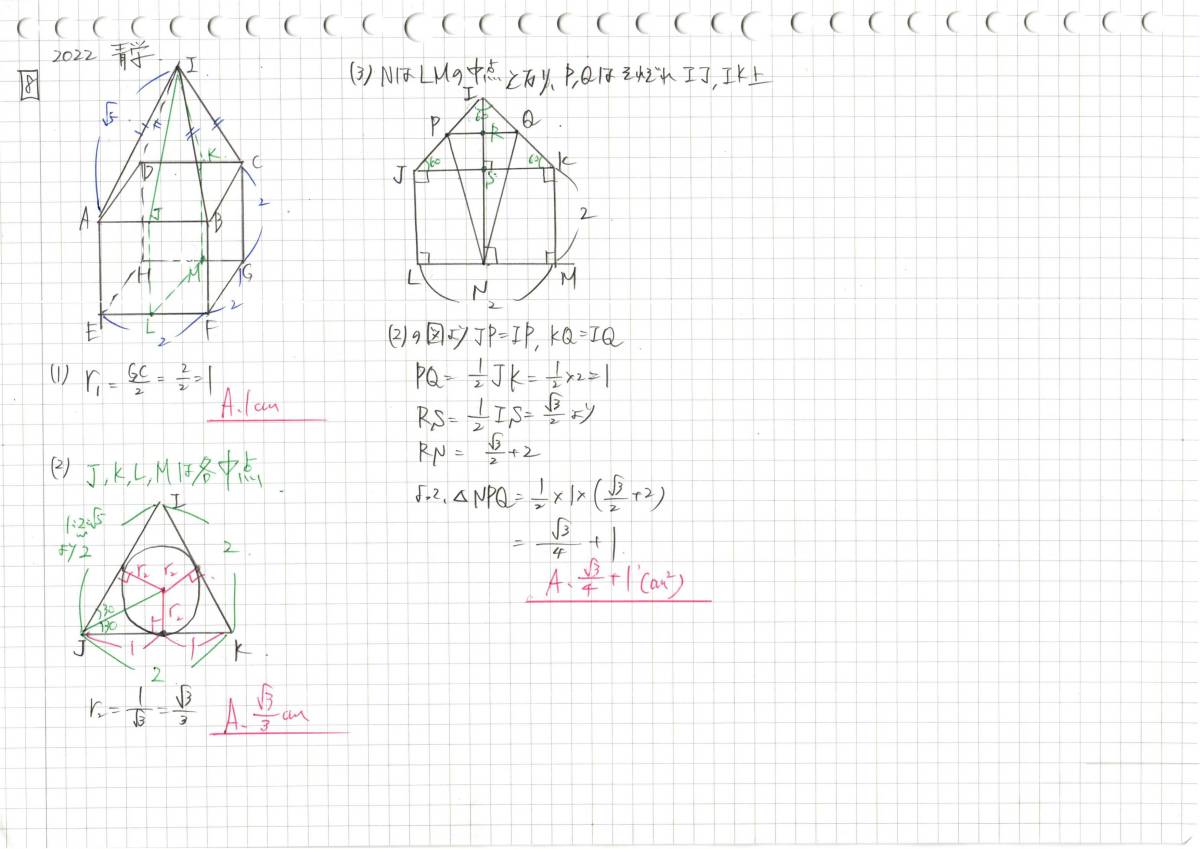 2022 青学
8
I
√5
D
K
C
A
J
B
2
H
M
G
E
L
F
2
2
(1) r₁ = GC/2 = 2/2 = 1
A. 1cm
(2) J, K, L, Mは各中点
I
1:2:√5
より2
2
r₂ r₂
r₂
30
30
J
1
1
K
2
r₂ = 1/√3 = √3/3
A. √3/3 cm
(3) NはLMの中点となり、P, QはそれぞれIJ, IK上
I
60
P
R
Q
J
60
S
60
K
2
L
N
M
2
(2)の図より JP=IP, KQ=IQ
PQ = 1/2 JK = 1/2 × 2 = 1
RS = 1/2 IS = √3/2 より
RN = √3/2 + 2
よって、△NPQ = 1/2 × 1 × (√3/2 + 2)
= √3/4 + 1
A. √3/4 + 1 (cm²)